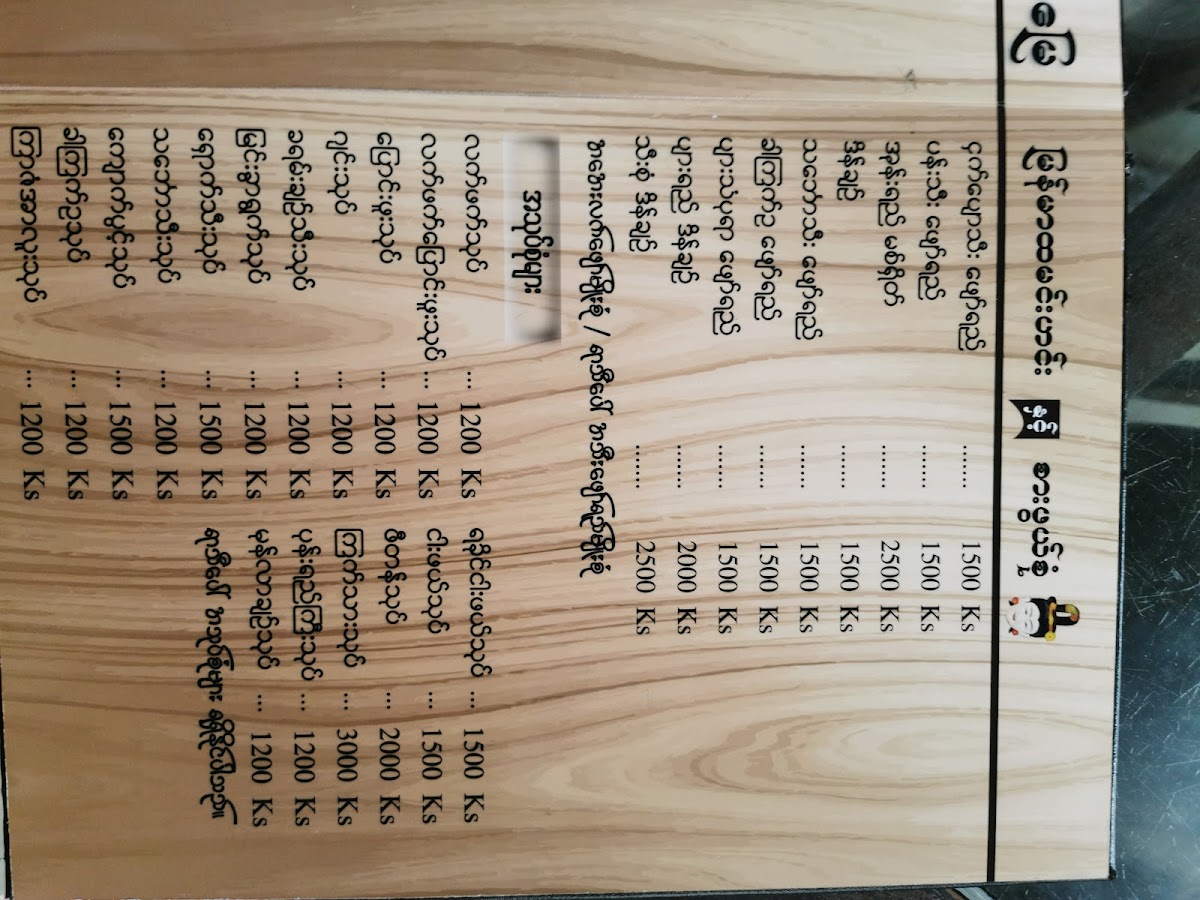 မြေ မြန်မာထမင်းဟင်း နှင့် စားပွယ်စုံ
ငှက်ပျောသီး ဖျော်ရည် ...... 1500 Ks
ပန်းသီး ဖျော်ရည် ...... 1500 Ks
အုန်းရည် မစ်ရှိတ် ...... 2500 Ks
ဒိန်ချဉ် ...... 1500 Ks
သင်္ဘောသီး ဖျော်ရည် ...... 1500 Ks
ခါကြက်ဥ ဖျော်ရည် ...... 1500 Ks
ပျားသံပုရာ ဖျော်ရည် ...... 1500 Ks
ပျားရည် ဒိန်ချဉ် ...... 2000 Ks
သီးစုံ ဒိန်ချဉ် ...... 2500 Ks
အအေးဖျော်မျိုးစုံ / ရာသီပေါ် အသီးဖျော်ရည်မျိုးစုံ
အသုပ်စုံများ
လက်ဖက်သုပ် ... 1200 Ks
လက်ဖက်ပြောင်းဖူးသုပ် ... 1200 Ks
ပြောင်းဖူးသုပ် ... 1200 Ks
ဂျင်းသုပ် ... 1200 Ks
ခရမ်းချဉ်သီးသုပ် ... 1200 Ks
မြင်းခွာရွက်သုပ် ... 1200 Ks
ရှောက်သီးသုပ် ... 1500 Ks
သင်္ဘောသီးသုပ် ... 1200 Ks
ကျောက်ပွင့်သုပ် ... 1500 Ks
ခါကြက်ဥသုပ် ... 1200 Ks
ကြာဇံအာလူးသုပ် ... 1200 Ks
ရခိုင်ငါးဖယ်သုပ် ... 1500 Ks
ငါးဖယ်သုပ် ... 1500 Ks
ဇီတန်သုပ် ... 2000 Ks
ကြက်သားသုပ် ... 3000 Ks
ပုန်းရည်ကြီးသုပ် ... 1200 Ks
မုန်လာချဉ်သုပ် ... 1200 Ks
ရာသီပေါ် အသုပ်စုံများ ရရှိနိုင်ပါသည်။